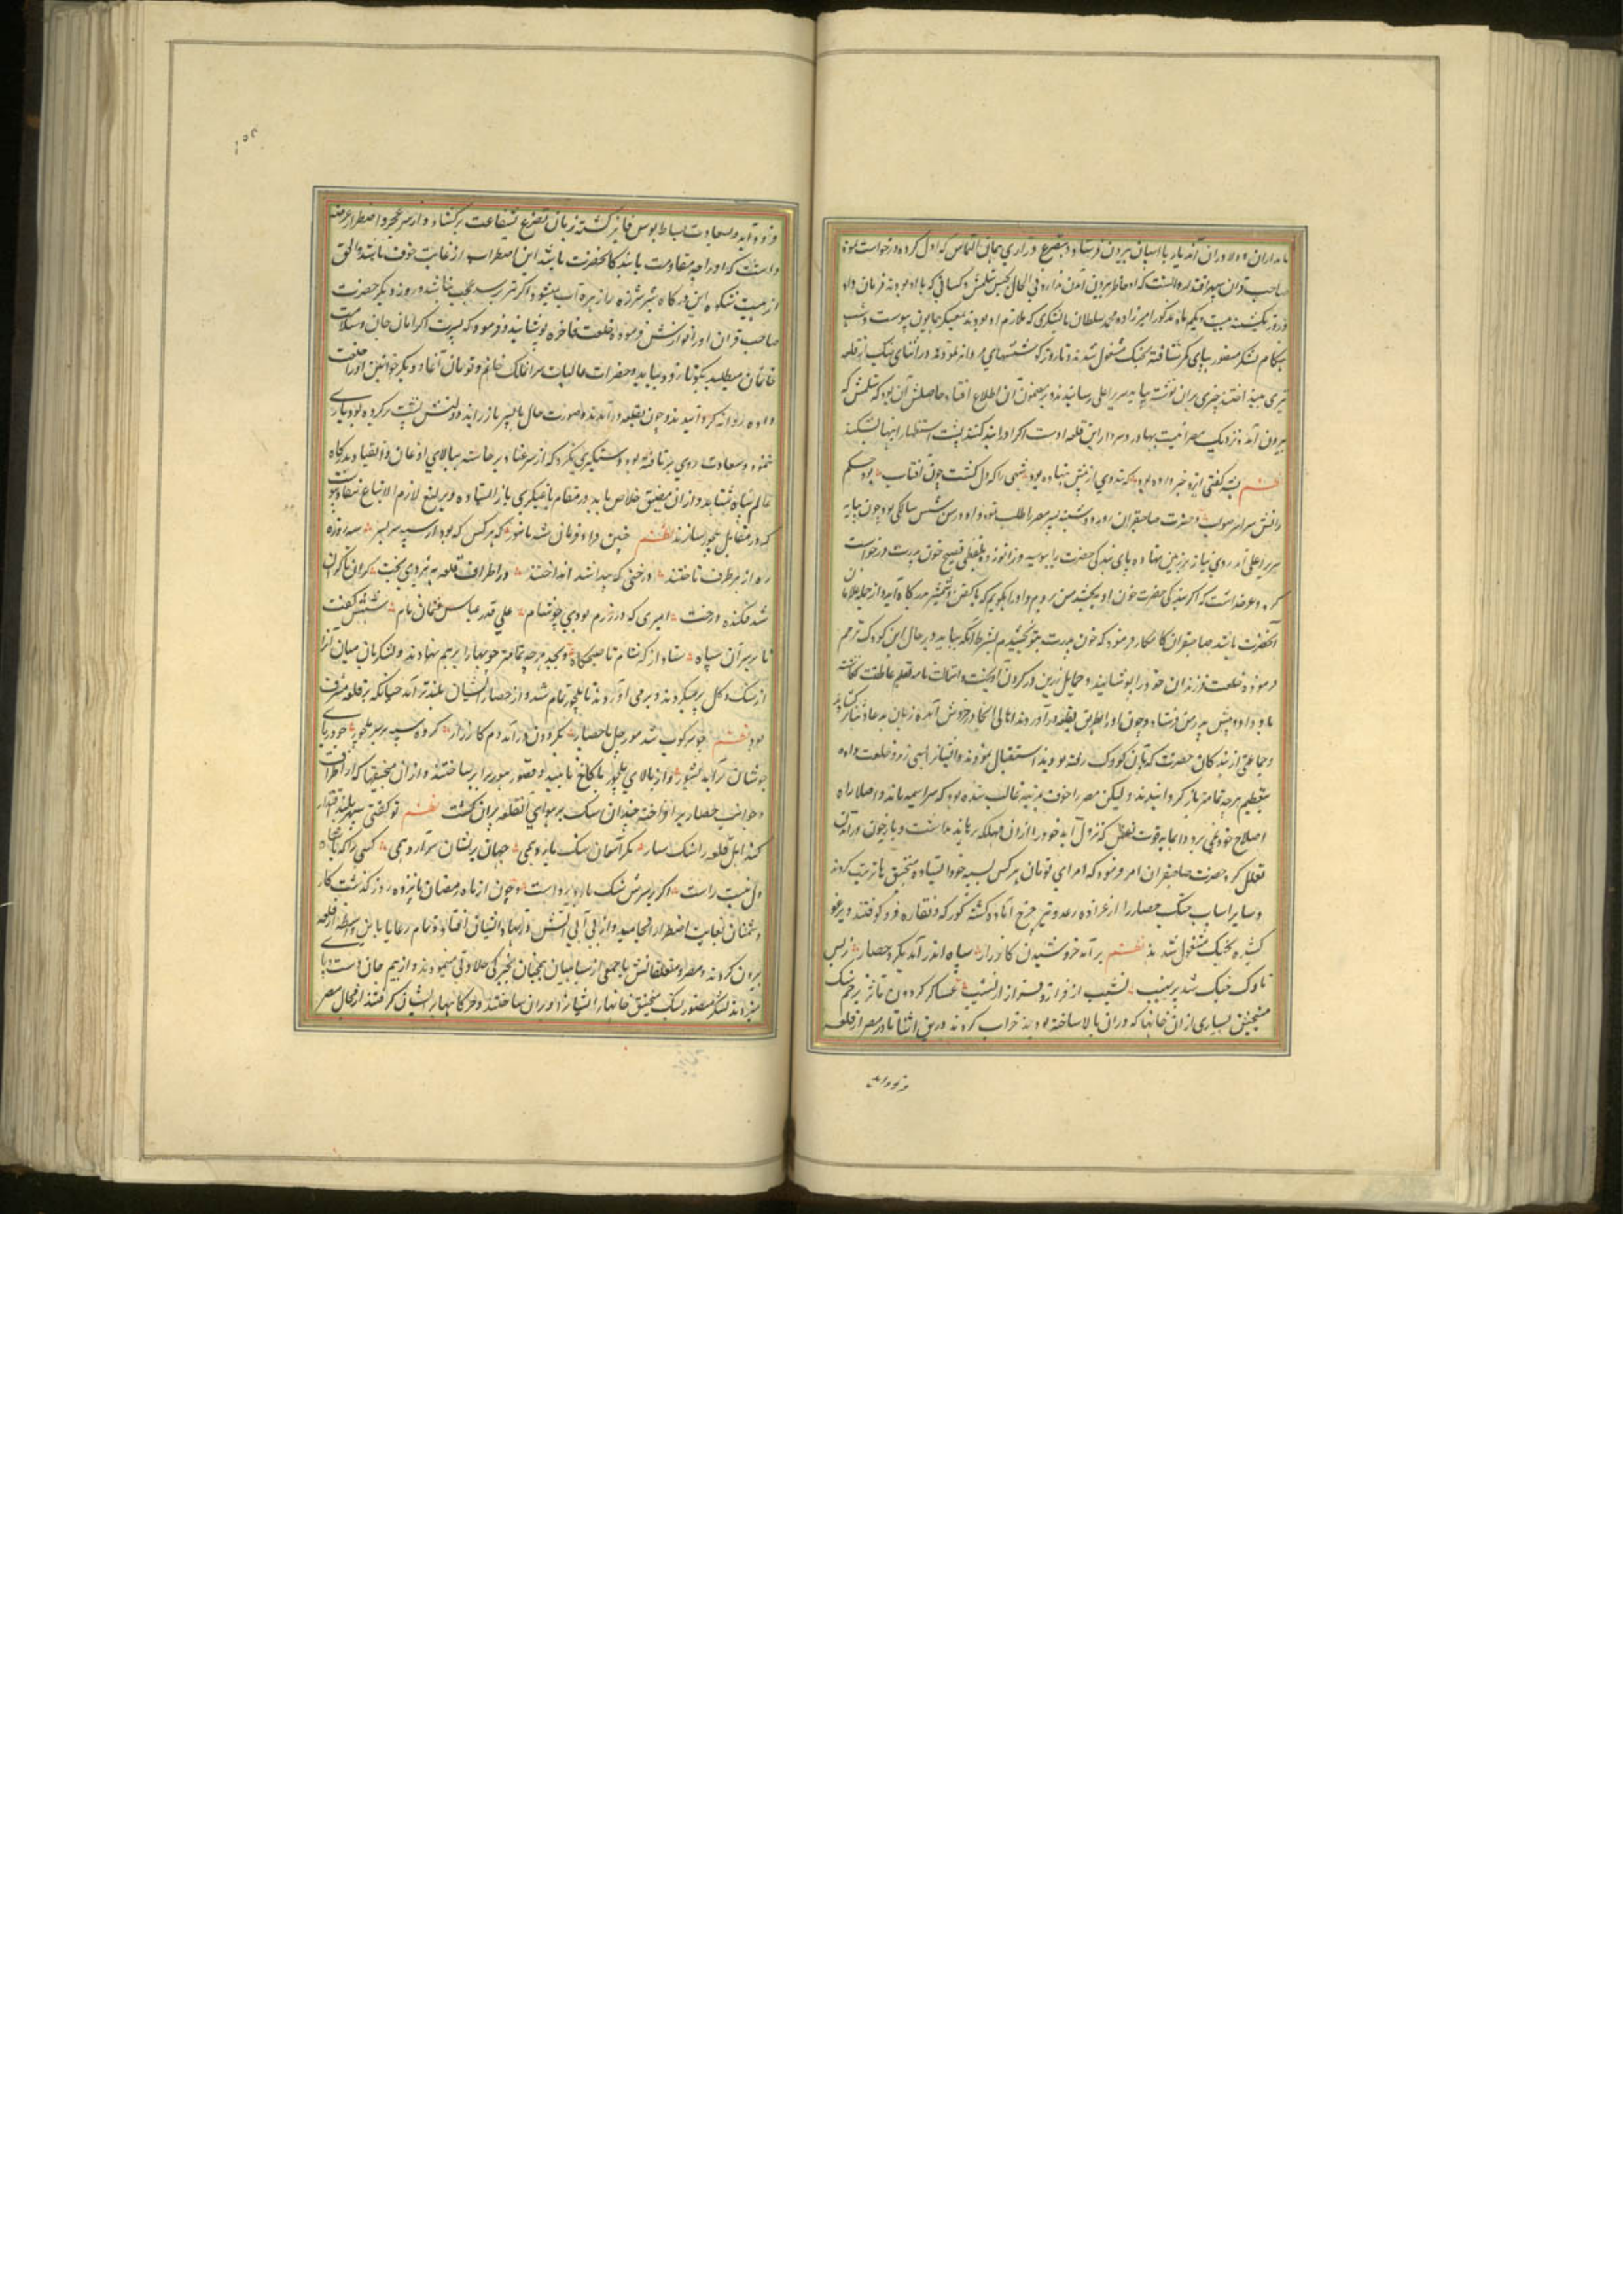 نامداران و دلاوران آن دیار با ایشان بیرون فرستاد و بتضرع و زاری همان التماس که اول کرده درخواست نمود
صاحب قران سپهر اقتدار دانست که او خاطر بیرون آمدن ندارد فی الحال بحبس شلمش و کسانی که با او بودند فرمان داد
و روز یکشنبه بیست و یکم ماه مذکور امیرزاده محمد سلطان با لشکری که ملازم او بودند بمعسکر همایون پیوست و شب
هنگام لشکر منصور بپای کمر شتافته بجنک مشغول شدند و تا روز کوششهای مردانه نمودند و در اثنای جنک از قلعه
تیری بینداختند چیزی بران نوشته بپایه سریر اعلی رسانیدند و بر مضمون آن اطلاع افتاد حاصلش آن بود که شلمش که
بیرون آمده نزدیک مصر نیست بهادر و سردار این قلعه اوست اگر او را بند کنند پشت استظهار اینها بشکند
نظم بتد کفتی ایزد خبر داده بود که بدوی از پیش بنهاده بود شهی را که دل کشت چون آفتاب بود حکم
رانش سراسر صواب و حضرت صاحبقران روز دوشنبه پسر مصر را طلب نمود و او در سن شش سالکی بود چون بپایه
سریر اعلی آمد روی نیاز بر زمین نهاده پای بندکی حضرت را ببوسید و زانو زده بلفظی فصیح خون پدرت درخواست
کرد و عرضه داشت که اگر بندکی حضرت خون او ببخشد من بروم و او را بکویم که با کفن و شمشیر بدرکاه آید و از جمله غلامان
آنحضرت باشد صاحبقران کامکار فرمود که خون پدرت بتو بخشیدم بشرط آنکه بیاید و بر حال این کودک ترحم
فرموده خلعت فرزندان خود را پوشانید و حمایل زرین در کردن آویخت و استمالت نامه بقلم عاطفت نکاشته
باو داد و پیش پدرش فرستاد و چون او را بطریق بقلعه درآوردند اهالی آنجا در خروش آمده زبان بدعا و ثنا کشاده
و جماعتی از بندکان حضرت که با آن کودک رفته بودند استقبال نمودند و ایشانرا اسبی زر و خلعت داده
بتعظیم هر چه تمامتر باز کردانیدند ولیکن مصر را خوف بمرتبه غالب شده بود که سراسیمه ماند و اصلا راه
اصلاح خود نمی برد و انجا به قوت نفس که نزول آید خود را از آن مهلکه برهاند نداشت و باز چون در آمدن
تعلل کرد حضرت صاحبقران امر فرمود که امرای تومان هر کس بسیبه خود ایستاده منجنیق ها ترتیب کردند
و سایر اسباب جنک حصار را از عراده رعد و تیر چرخ آماده کشته کورکه و نقاره فرو کوفتند و برغو
کشیده بجنک مشغول شدند نظم برآمد خروشیدن کارزار سپاه اندر آمد بکرد حصار ز بس
ناوک جنک شد پر نهیب نشیب از فراز و فراز از نشیب عساکر کردون مآثر بزخم سنک
منجنیق بسیاری از ان خانها که در ان بالا ساخته بودند خراب کردند و درین اثنا مادر مصر از قلعه
فرود آمد
فرود آمد و بسعادت بساط بوس فایز کشته زبان تضرع بشفاعت برکشاد و از سر عجز و اضطرار عرضه
داشت که او را چه مقاومت با بندکان حضرت باشد این اضطراب از غایت خوف باشد و الحق
از هیبت شکوه این درکاه شیر شرزه را زهره آب میشود اگر بترسد عجب نباشد و روز دیگر حضرت
صاحب قران او را نوازش فرموده خلعت فاخره پوشانید و فرمود که پسرت اگر امان جان و سلامت
خانمان میطلبد بکو تا زود بیاید و حضرات عالیات سرای ملک خانم و تومان آغا و دیگر خواتین او را خلعت
داده روانه کردانیدند و چون بقلعه درآمد و صورت حال با پسر باز راند دولتش پشت بر کرده بود یاری
ننمود و سعادت روی برتافته بود دستکیری نکرد که از سر عناد برخاسته ببالای اذعان و انقیاد بدرکاه
عالم پناه شتابد و از ان مضیق خلاص یابد در مقام یاغیکری باز ایستاده و یرلیغ لازم الاتباع نفاذ یافت
که در مقابل ملجور سازند نظم چنین داد فرمان شه نامور که هر کس که بود از سپه سر بسر سه روزه
ره از هر طرف تاختند درختی که جدا شد انداختند در اطراف قلعه به نیروی بخت کران تا کران
شد فکنده درخت امیری که در رزم بودی چو شام علی قدر عباس عثمان بنام شهش کفت
تا بر سر آن سپاه ستاد از که شام تا صبحکاه و بجد هر چه تمامتر چوبها را بر هم نهادند و لشکریان میان آنرا
از سنک و کل پر میکردند و بر می آوردند تا ملجور تمام شد و از حصار ایشان بلندتر آمد چنانکه بر قلعه مشرف
بود نظم چو سرکوب شد مورچل با حصار بکردون درآمد دم کارزار کروه سپه بر سر ملجور چو دریای
جوشان برآمد بشور و از بالای ملجور با کاخ ناهید و قصور هور برابر ساختند و از ان منجنیقها که از اطراف
و جوانب حصار برافراخته چندان سنک بر هوای آن قلعه پران کشت نظم تو کفتی سپهر بلند اقتدار
کند اهل قلعه را سنکسار مکر آسمان سنک بارد همی جهان بر ایشان سرآرد همی کسی را که با شاه
دل نیست راست اگر بر سرش سنک بارد رواست و چون از ماه رمضان پانزده روز کذشت کار
دشمنان بغایت اضطرار انجامید و از بی آبی آتش در نهاد ایشان افتاد و تمام رعایا باین واسطه از قلعه
بیرون کردند و مصر و متعلقانش با جمعی از سپاهیان همچنان بخیرکی جلادتی مینمودند و از بیم جان دست و پای
میزدند لشکر منصور بسنک منجنیق خانها را ایشانرا ویران ساختند و خرکاهها بر ایشان کرفتند از محال مصر